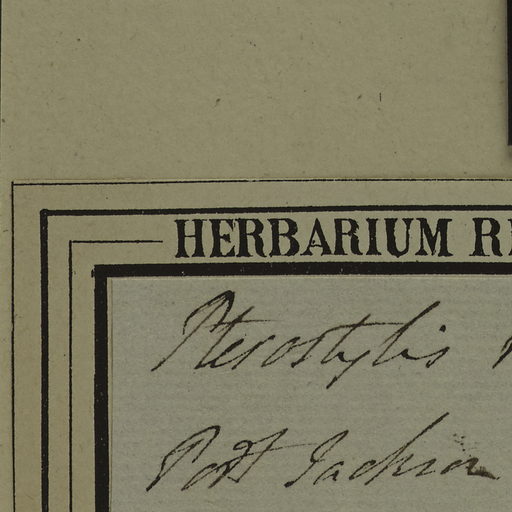 HERBARIUM
Pterostylis
Port Jackson